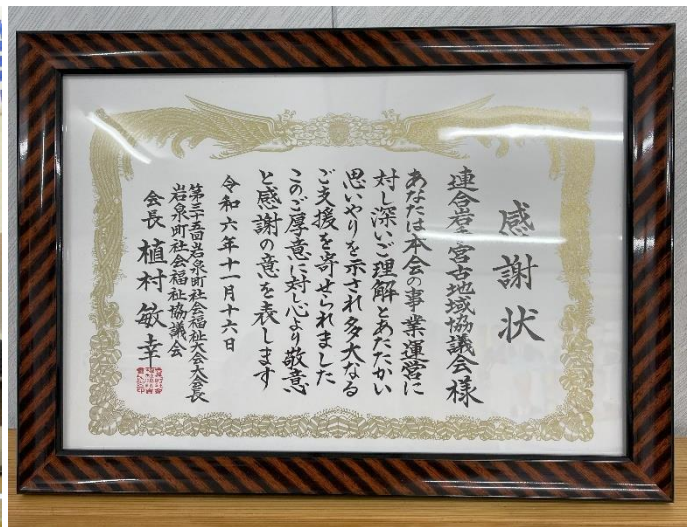 感謝状
連合岩手宮古地域協議会様
あなたは本会の事業運営に
対し深いご理解とあたたかい
思いやりを示され多大なる
ご支援を寄せられました
このご厚意に対し心より敬意
と感謝の意を表します
令和六年十一月十六日
第三十五回岩泉町社会福祉大会大会長
岩泉町社会福祉協議会
会長 植村敏幸